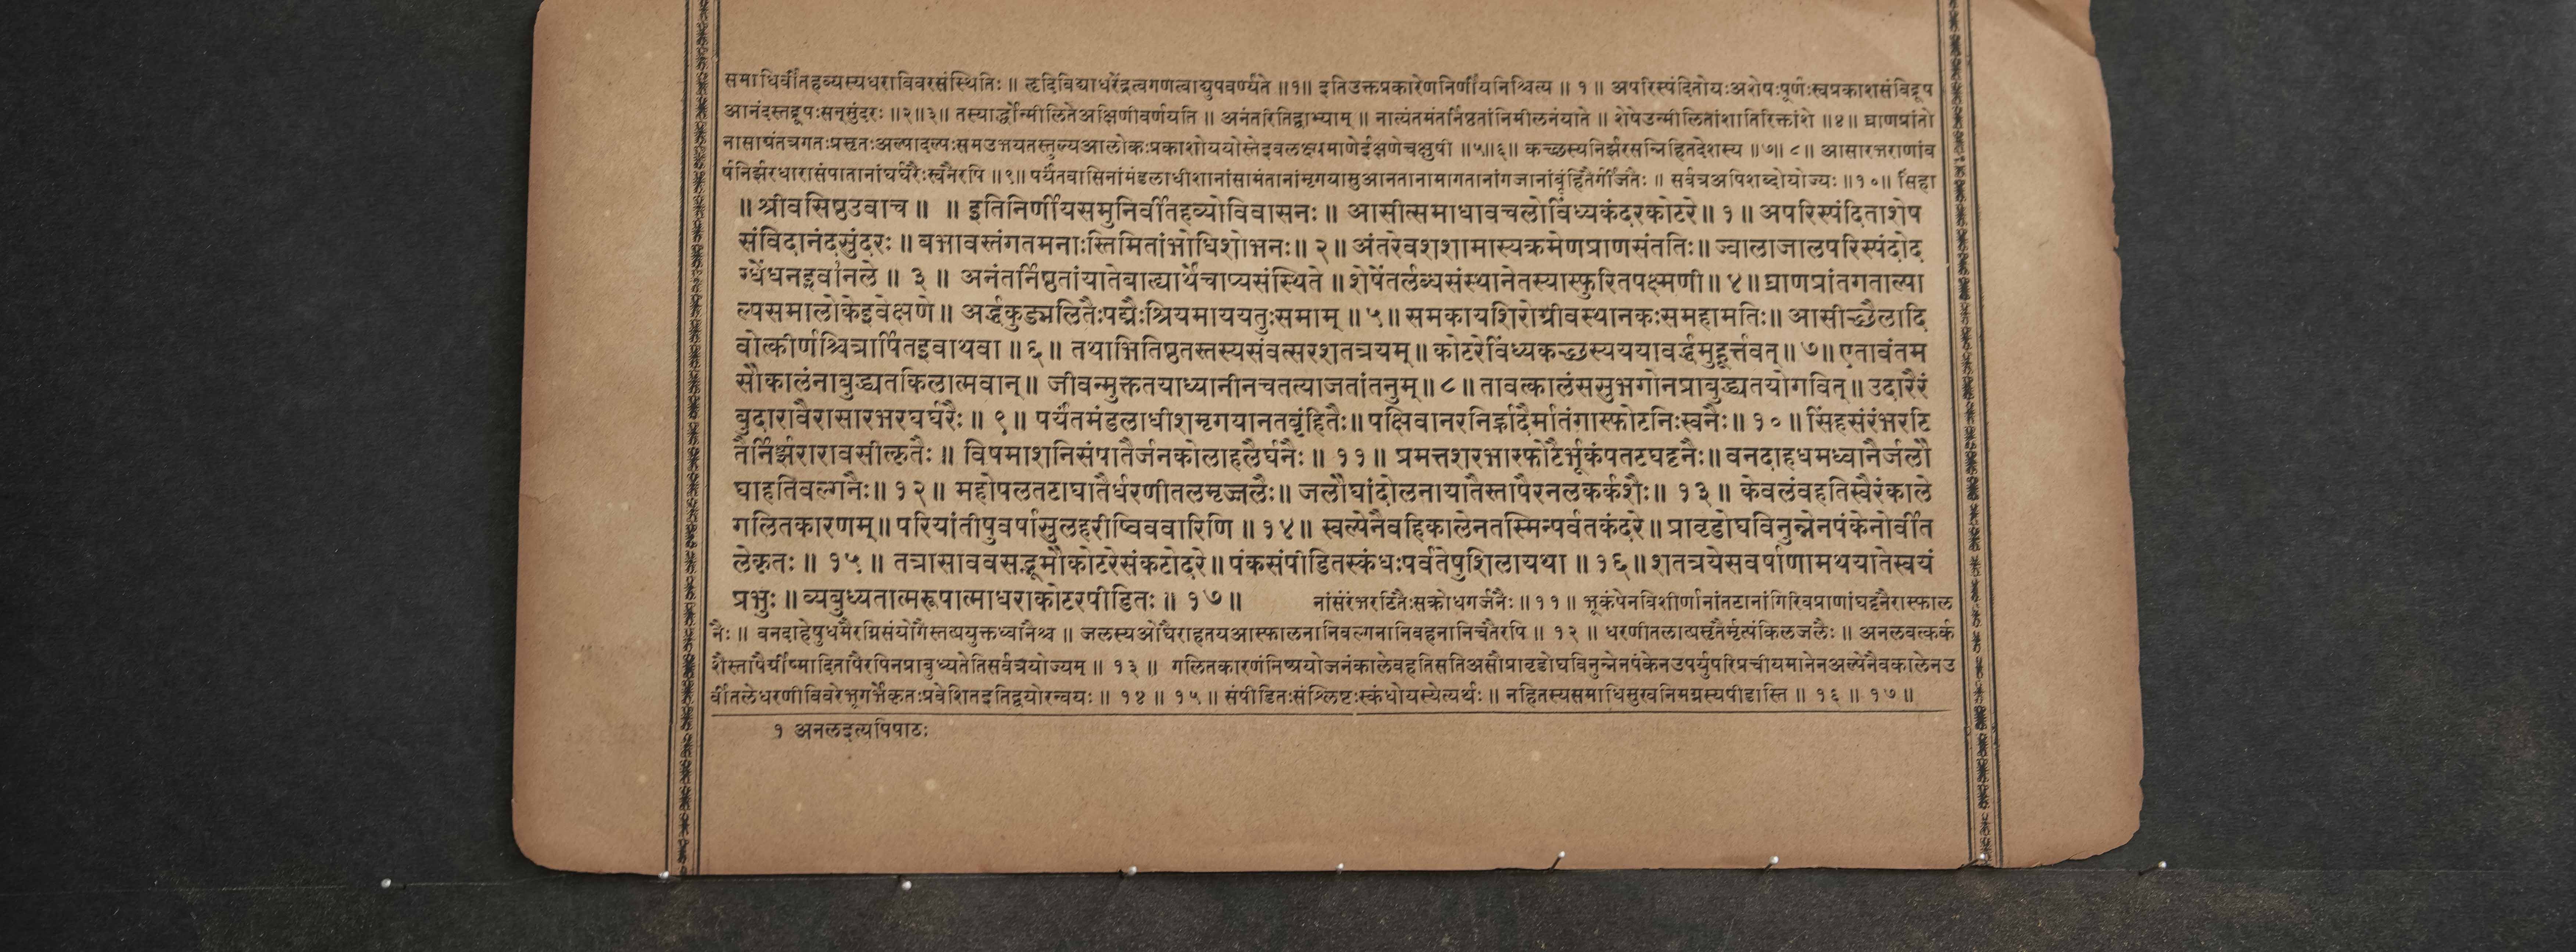 समाधिर्वीतहव्यस्यधराविवरसंस्थितिः ॥ हृदिविद्याधरेंद्रत्वगणत्वाद्युपवर्ण्यते ॥१॥ इतिउक्तप्रकारेणनिर्णीयनिश्चित्य ॥ १ ॥ अपरिस्पंदितोयःअशेषःपूर्णःस्वप्रकाशसंविद्रूप
आनंदस्तद्रूपःसन्सुंदरः ॥२॥३॥ तस्यार्द्धोन्मीलितेअक्षिणीवर्णयति ॥ अनंतरितिद्वाभ्याम् ॥ नात्यंतमंतर्निष्ठतांनिमीलनंयाते ॥ शेषेउन्मीलितांशातिरिक्तांशे ॥४॥ घ्राणप्रांतो
नासाग्रंतत्रगतःप्रसृतःअल्पादल्पःसमउभयतस्तुल्यआलोकःप्रकाशोययोस्तेइवलक्ष्यमाणेईक्षणेचक्षुषी ॥५॥६॥ कच्छस्यनिर्झरसन्निहितदेशस्य ॥७॥ ८॥ आसारभराणांव
र्षनिर्झरधारासंपातानांघर्घरैःस्वनैरपि ॥९॥ पर्यंतवासिनांमंडलाधीशानांसामंतानांमृगयासुआनतानामागतानांगजानांबृंहितैर्गर्जितैः ॥ सर्वत्रअपिशब्दोयोज्यः ॥१०॥ सिंहा
॥ श्रीवसिष्ठउवाच ॥ ॥ इतिनिर्णीयसमुनिर्वीतहव्योविवासनः ॥ आसीत्समाधावचलोविंध्यकंदरकोटरे ॥ १ ॥ अपरिस्पंदिताशेष
संविदानंदसुंदरः ॥ बभावस्तंगतमनाःस्तिमितांभोधिशोभनः ॥ २ ॥ अंतरेवशशामास्यक्रमेणप्राणसंततिः ॥ ज्वालाजालपरिस्पंदोद
ग्धेंधनइवानले ॥ ३ ॥ अनंतर्निष्ठतांयातेबाह्यार्थेचाप्यसंस्थिते ॥ शेषेंतर्लब्धसंस्थानेतस्यास्फुरितपक्ष्मणी ॥ ४ ॥ घ्राणप्रांतगताल्पा
ल्पसमालोकेइवेक्षणे ॥ अर्द्धकुड्मलितैःपद्मैःश्रियमाययतुःसमाम् ॥ ५ ॥ समकायशिरोग्रीवस्थानकःसमहामतिः ॥ आसीच्छैलादि
वोत्कीर्णश्चित्रार्पितइवाथवा ॥ ६ ॥ तथाभितिष्ठतस्तस्यसंवत्सरशतत्रयम् ॥ कोटरेविंध्यकच्छस्यययावर्द्धमुहूर्त्तवत् ॥ ७ ॥ एतावंतम
सौकालंनाबुद्ध्यतकिलात्मवान् ॥ जीवन्मुक्ततयाध्यानीनचतत्याजतांतनुम् ॥ ८ ॥ तावत्कालंससुभगोनप्राबुद्ध्यतयोगवित् ॥ उदारैरं
बुदारावैरासारभरघर्घरैः ॥ ९ ॥ पर्यंतमंडलाधीशमृगयानतबृंहितैः ॥ पक्षिवानरनिर्ह्रादैर्मातंगास्फोटनिःस्वनैः ॥ १० ॥ सिंहसंरंभरटि
तैर्निर्झरारावसीत्कृतैः ॥ विषमाशनिसंपातैर्जनकोलाहलैर्घनैः ॥ ११ ॥ प्रमत्तशरभास्फोटैर्भूकंपतटघट्टनैः ॥ वनदाहधमध्वानैर्जलौ
घाहतिवल्गनैः ॥ १२ ॥ महोपलतटाघातैर्धरणीतलमृज्जलैः ॥ जलौघांदोलनायातैस्तापैरनलकर्कशैः ॥ १३ ॥ केवलंवहतिस्वैरंकाले
गलितकारणम् ॥ परियांतीषुवर्षासुलहरीष्विववारिणि ॥ १४ ॥ स्वल्पेनैवहिकालेनतस्मिन्पर्वतकंदरे ॥ प्रावृडोघविनुन्नेनपंकेनोर्वीत
लेकृतः ॥ १५ ॥ तत्रासाववसद्भूमौकोटरेसंकटोदरे ॥ पंकसंपीडितस्कंधःपर्वतेषुशिलायथा ॥ १६ ॥ शतत्रयेसवर्षाणामथयातेस्वयं
प्रभुः ॥ व्यबुध्यतात्मरूपात्माधराकोटरपीडितः ॥ १७ ॥ नांसंरंभरटितैःसक्रोधगर्जनैः ॥ ११ ॥ भूकंपेनविशीर्णानांतटानांगिरिवप्राणांघट्टनैरास्फाल
नैः ॥ वनदाहेषुधमैरग्निसंयोगैस्तत्प्रयुक्तध्वानैश्च ॥ जलस्यओघैराहतयआस्फालनानिवल्गनानिवहनानिचतैरपि ॥ १२ ॥ धरणीतलात्प्रसृतैर्मृत्पंकिलजलैः ॥ अनलवत्कर्क
शैस्तापैर्ग्रीष्मादितापैरपिनप्राबुध्यतेतिसर्वत्रयोज्यम् ॥ १३ ॥ गलितकारणंनिष्प्रयोजनंकालेवहतिसतिअसौप्रावृडोघविनुन्नेनपंकेनउपर्युपरिप्रचीयमानेनअल्पेनैवकालेनउ
र्वीतलेधरणीविवरेभूगर्भेकृतःप्रवेशितइतिद्वयोरन्वयः ॥ १४ ॥ १५ ॥ संपीडितःसंश्लिष्टःस्कंधोयस्येत्यर्थः ॥ नहितस्यसमाधिसुखनिमग्नस्यपीडास्ति ॥ १६ ॥ १७ ॥
१ अनलइत्यपिपाठः